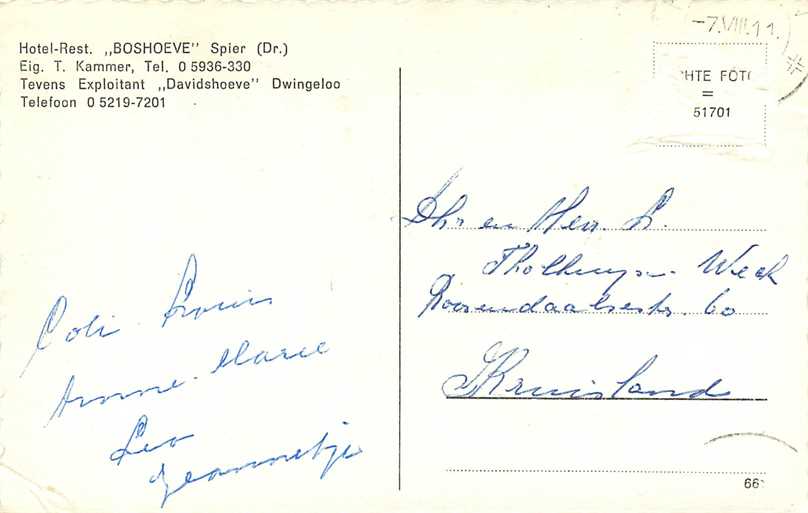 Hotel-Rest. „BOSHOEVE" Spier (Dr.)
Eig. T. Kammer, Tel. 0 5936-330
Tevens Exploitant „Davidshoeve" Dwingeloo
Telefoon 0 5219-7201
-7.VIII.11.
CHTE FOTO
=
51701
Dhr en Mevr. L.
Weck
Roosendaalsestr. 60
Kruisland
Louis
Anne-Marie
Leo
Jeannetje
66